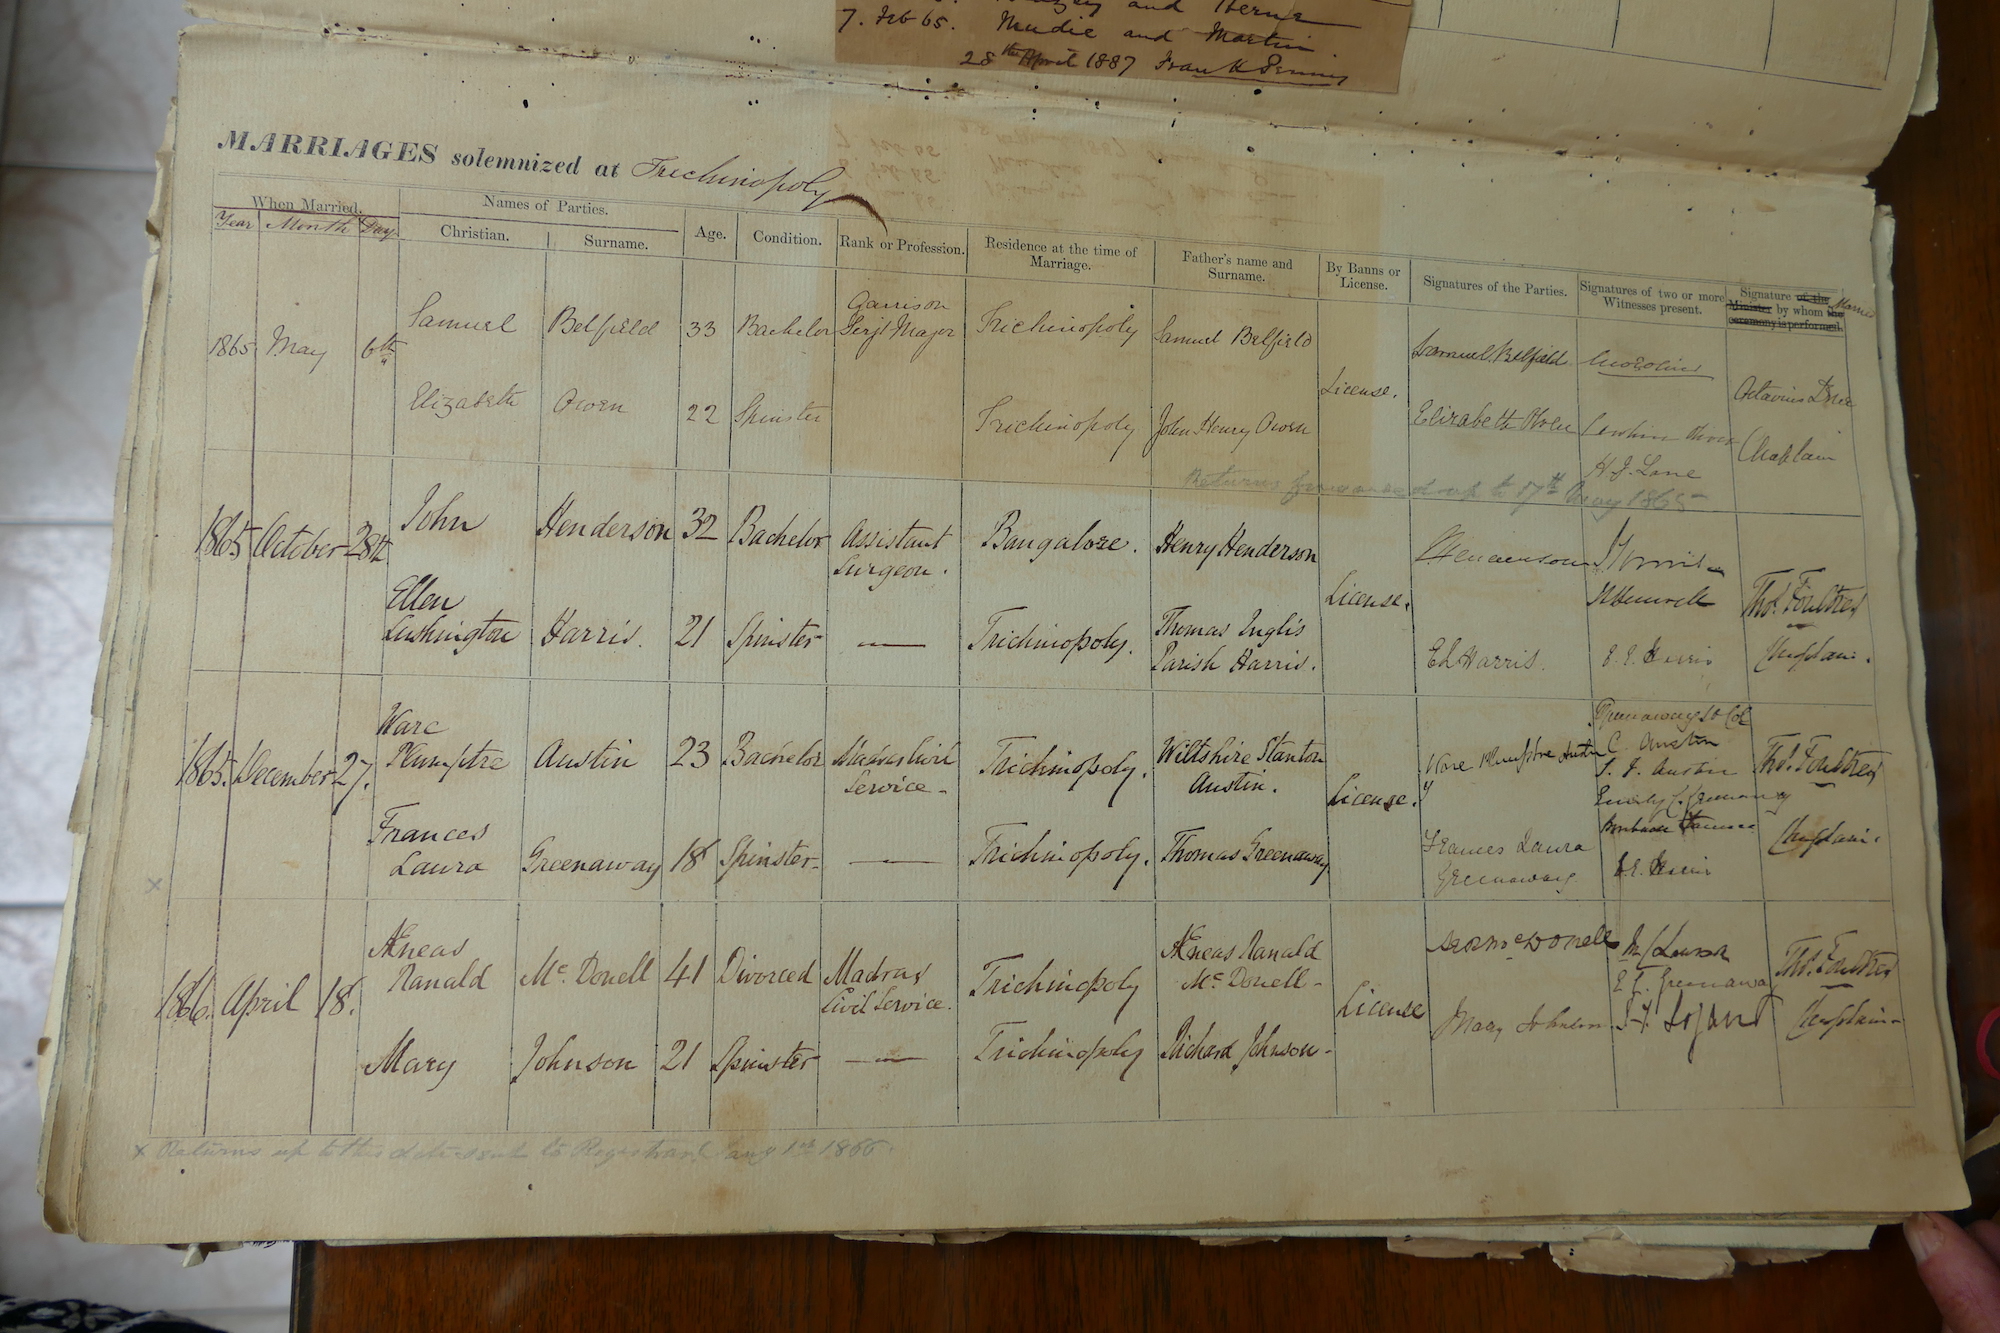 and Herne
7. Feb 65. Mudie and Martin.
28th April 1887 Frank Penny
MARRIAGES solemnized at Trichinopoly
When Married. Names of Parties. Age. Condition. Rank or Profession. Residence at the time of Marriage. Father's name and Surname. By Banns or License. Signatures of the Parties. Signatures of two or more Witnesses present. Signature of the Minister by whom the ceremony is performed. Married
Year Month Day Christian. Surname.
1865 May 6th Samuel Belfield 33 Bachelor Garrison Serjt Major Trichinopoly Samuel Belfield License. Samuel Belfield
Elizabeth Owen 22 Spinster Trichinopoly John Henry Owen Elizabeth Owen H. J. Lane Octavius Chaplain
Returns forwarded up to 17th May 1865
1865 October 28th John Henderson 32 Bachelor Assistant Surgeon. Bangalore. Henry Henderson License. Henderson Thos. Foulkes
Ellen Lushington Harris. 21 Spinster — Trichinopoly. Thomas Inglis Parish Harris. E L Harris. Chaplain.
1865. December 27. Ware Plumptre Austin 23 Bachelor Madras Civil Service - Trichinopoly. Wiltshire Stanton Austin. License. Ware Plumptre Austin Greenaway Lt Col C. Austin Austin Thos. Foulkes
Frances Laura Greenaway 18 Spinster - — Trichinopoly. Thomas Greenaway Frances Laura Greenaway Chaplain.
1866. April 18. Æneas Ranald Mc. Donell 41 Divorced Madras Civil Service. Trichinopoly Æneas Ranald Mc. Donell - License McDonell E. C. Greenaway Thos. Foulkes
Mary Johnson 21 Spinster — Trichinopoly Richard Johnson - Mary Johnson Chaplain -
x Returns up to this date sent to Registrar Jany 1st 1866.